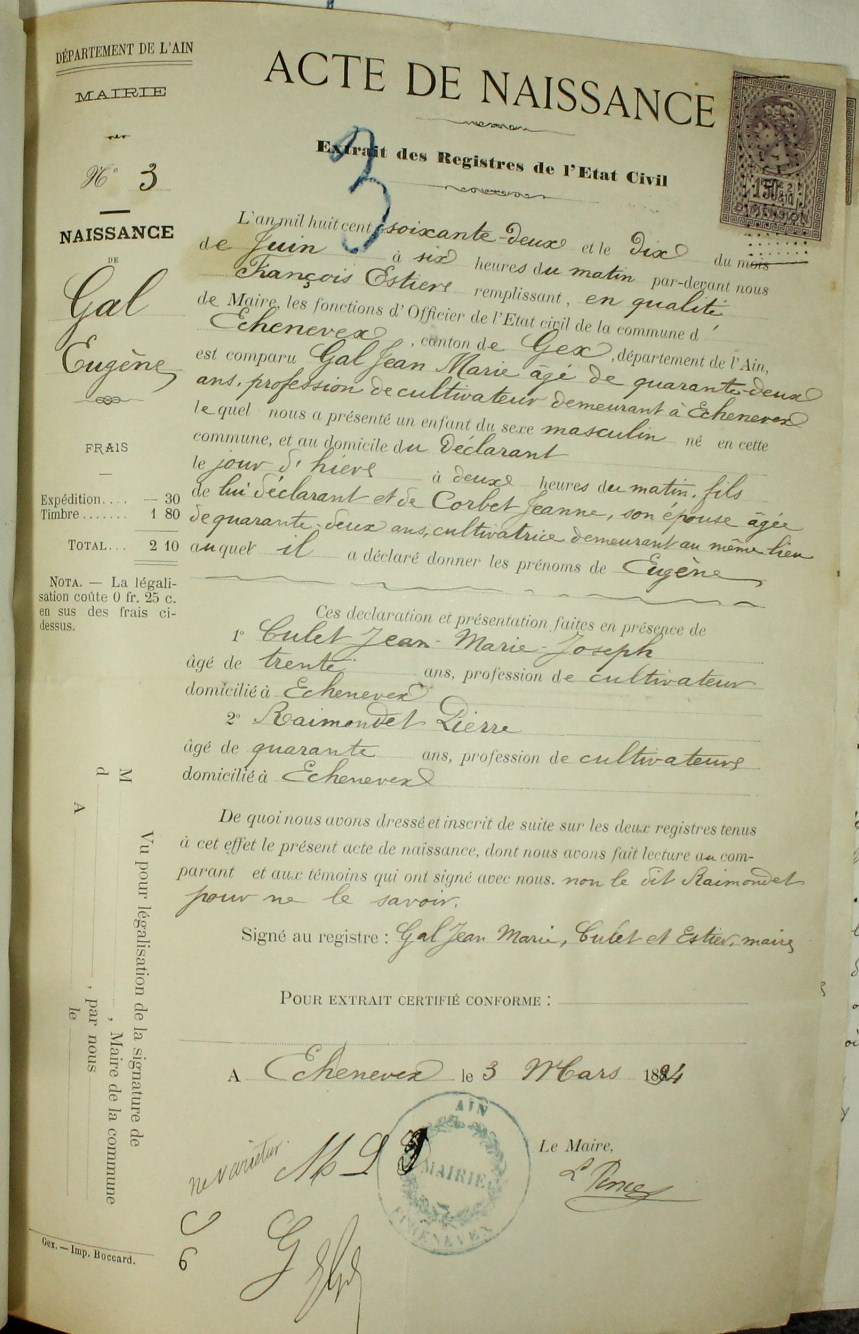 DÉPARTEMENT DE L'AIN
MAIRIE
N° 3
NAISSANCE
DE
Gal
Eugène
FRAIS
Expédition.... — 30
Timbre....... 1 80
TOTAL... 2 10
NOTA. — La légali-
sation coûte 0 fr. 25 c.
en sus des frais ci-
dessus.
Vu pour légalisation de la signature de
M , Maire de la commune
d , par nous
A le
Gex. — Imp. Boccard.
ACTE DE NAISSANCE
3
Extrait des Registres de l'Etat Civil
L'an mil huit cent soixante-deux et le Dix du mois
de Juin à six heures du matin par-devant nous
François Estier remplissant, en qualité
de Maire, les fonctions d'Officier de l'Etat civil de la commune d'
Echenevex, canton de Gex, département de l'Ain,
est comparu Gal Jean Marie âgé de quarante-deux
ans, profession de cultivateur demeurant à Echenevex
lequel nous a présenté un enfant du sexe masculin né en cette
commune, et au domicile du Déclarant
le jour d'hier à deux heures du matin, fils
de lui déclarant et de Corbet Jeanne, son épouse âgée
de quarante-deux ans, cultivatrice demeurant au même lieu
auquel il a déclaré donner les prénoms de Eugène
Ces declaration et présentation faites en présence de
1° Culet Jean-Marie-Joseph
âgé de trente ans, profession de cultivateur
domicilié à Echenevex
2° Raimondet Pierre
âgé de quarante ans, profession de cultivateur
domicilié à Echenevex
De quoi nous avons dressé et inscrit de suite sur les deux registres tenus
à cet effet le présent acte de naissance, dont nous avons fait lecture au com-
parant et aux témoins qui ont signé avec nous. non le dit Raimondet
pour ne le savoir.
Signé au registre : Gal Jean Marie, Culet et Estier, maire
POUR EXTRAIT CERTIFIÉ CONFORME :
A Echenevex le 3 Mars 1894
Le Maire,
AIN
MAIRIE
ECHENEVEX
ne varietur